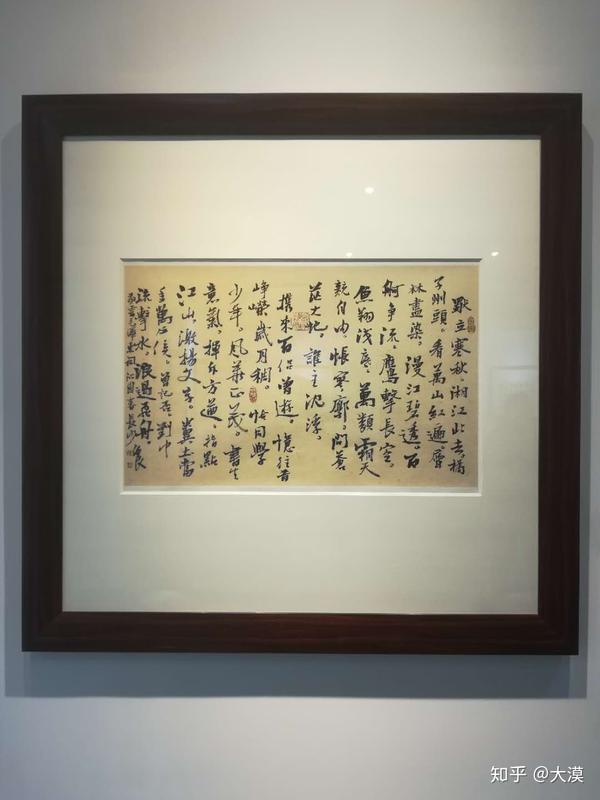 獨立寒秋,湘江北去,橘
子州頭。看萬山紅遍,層
林盡染。漫江碧透,百
舸争流。鷹擊長空,
魚翔浅底,萬類霜天
競自由。悵寥廓,問蒼
茫大地,誰主沉浮。
携来百侣曾遊。憶往昔
崢嶸歲月稠。恰同學
少年,風華正茂。書生
意氣,揮斥方遒。指點
江山,激揚文字。糞土當
年萬户侯。曾記否,到中
流擊水,浪遏飛舟。
毛澤東詞沁園春長沙
知乎 @大漠